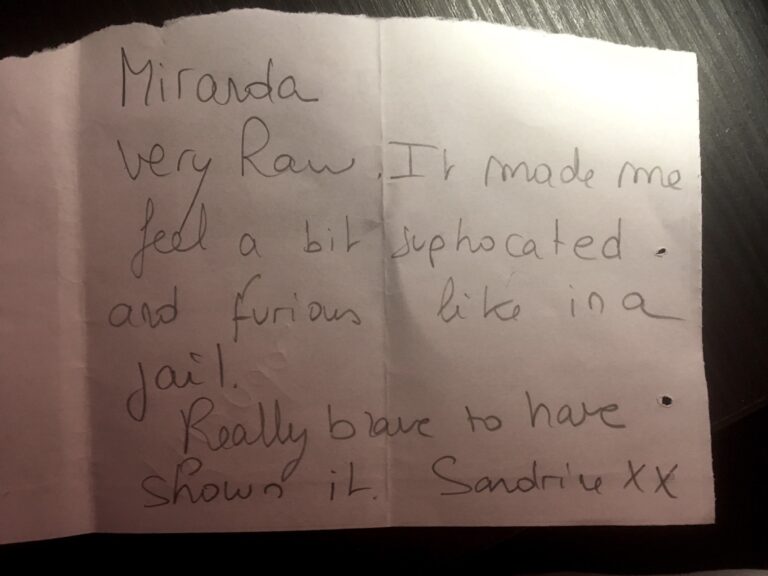 Miranda
very Raw. It made me
feel a bit suphocated
and furious like in a
jail.
Really brave to have
shown it. Sandrine XX